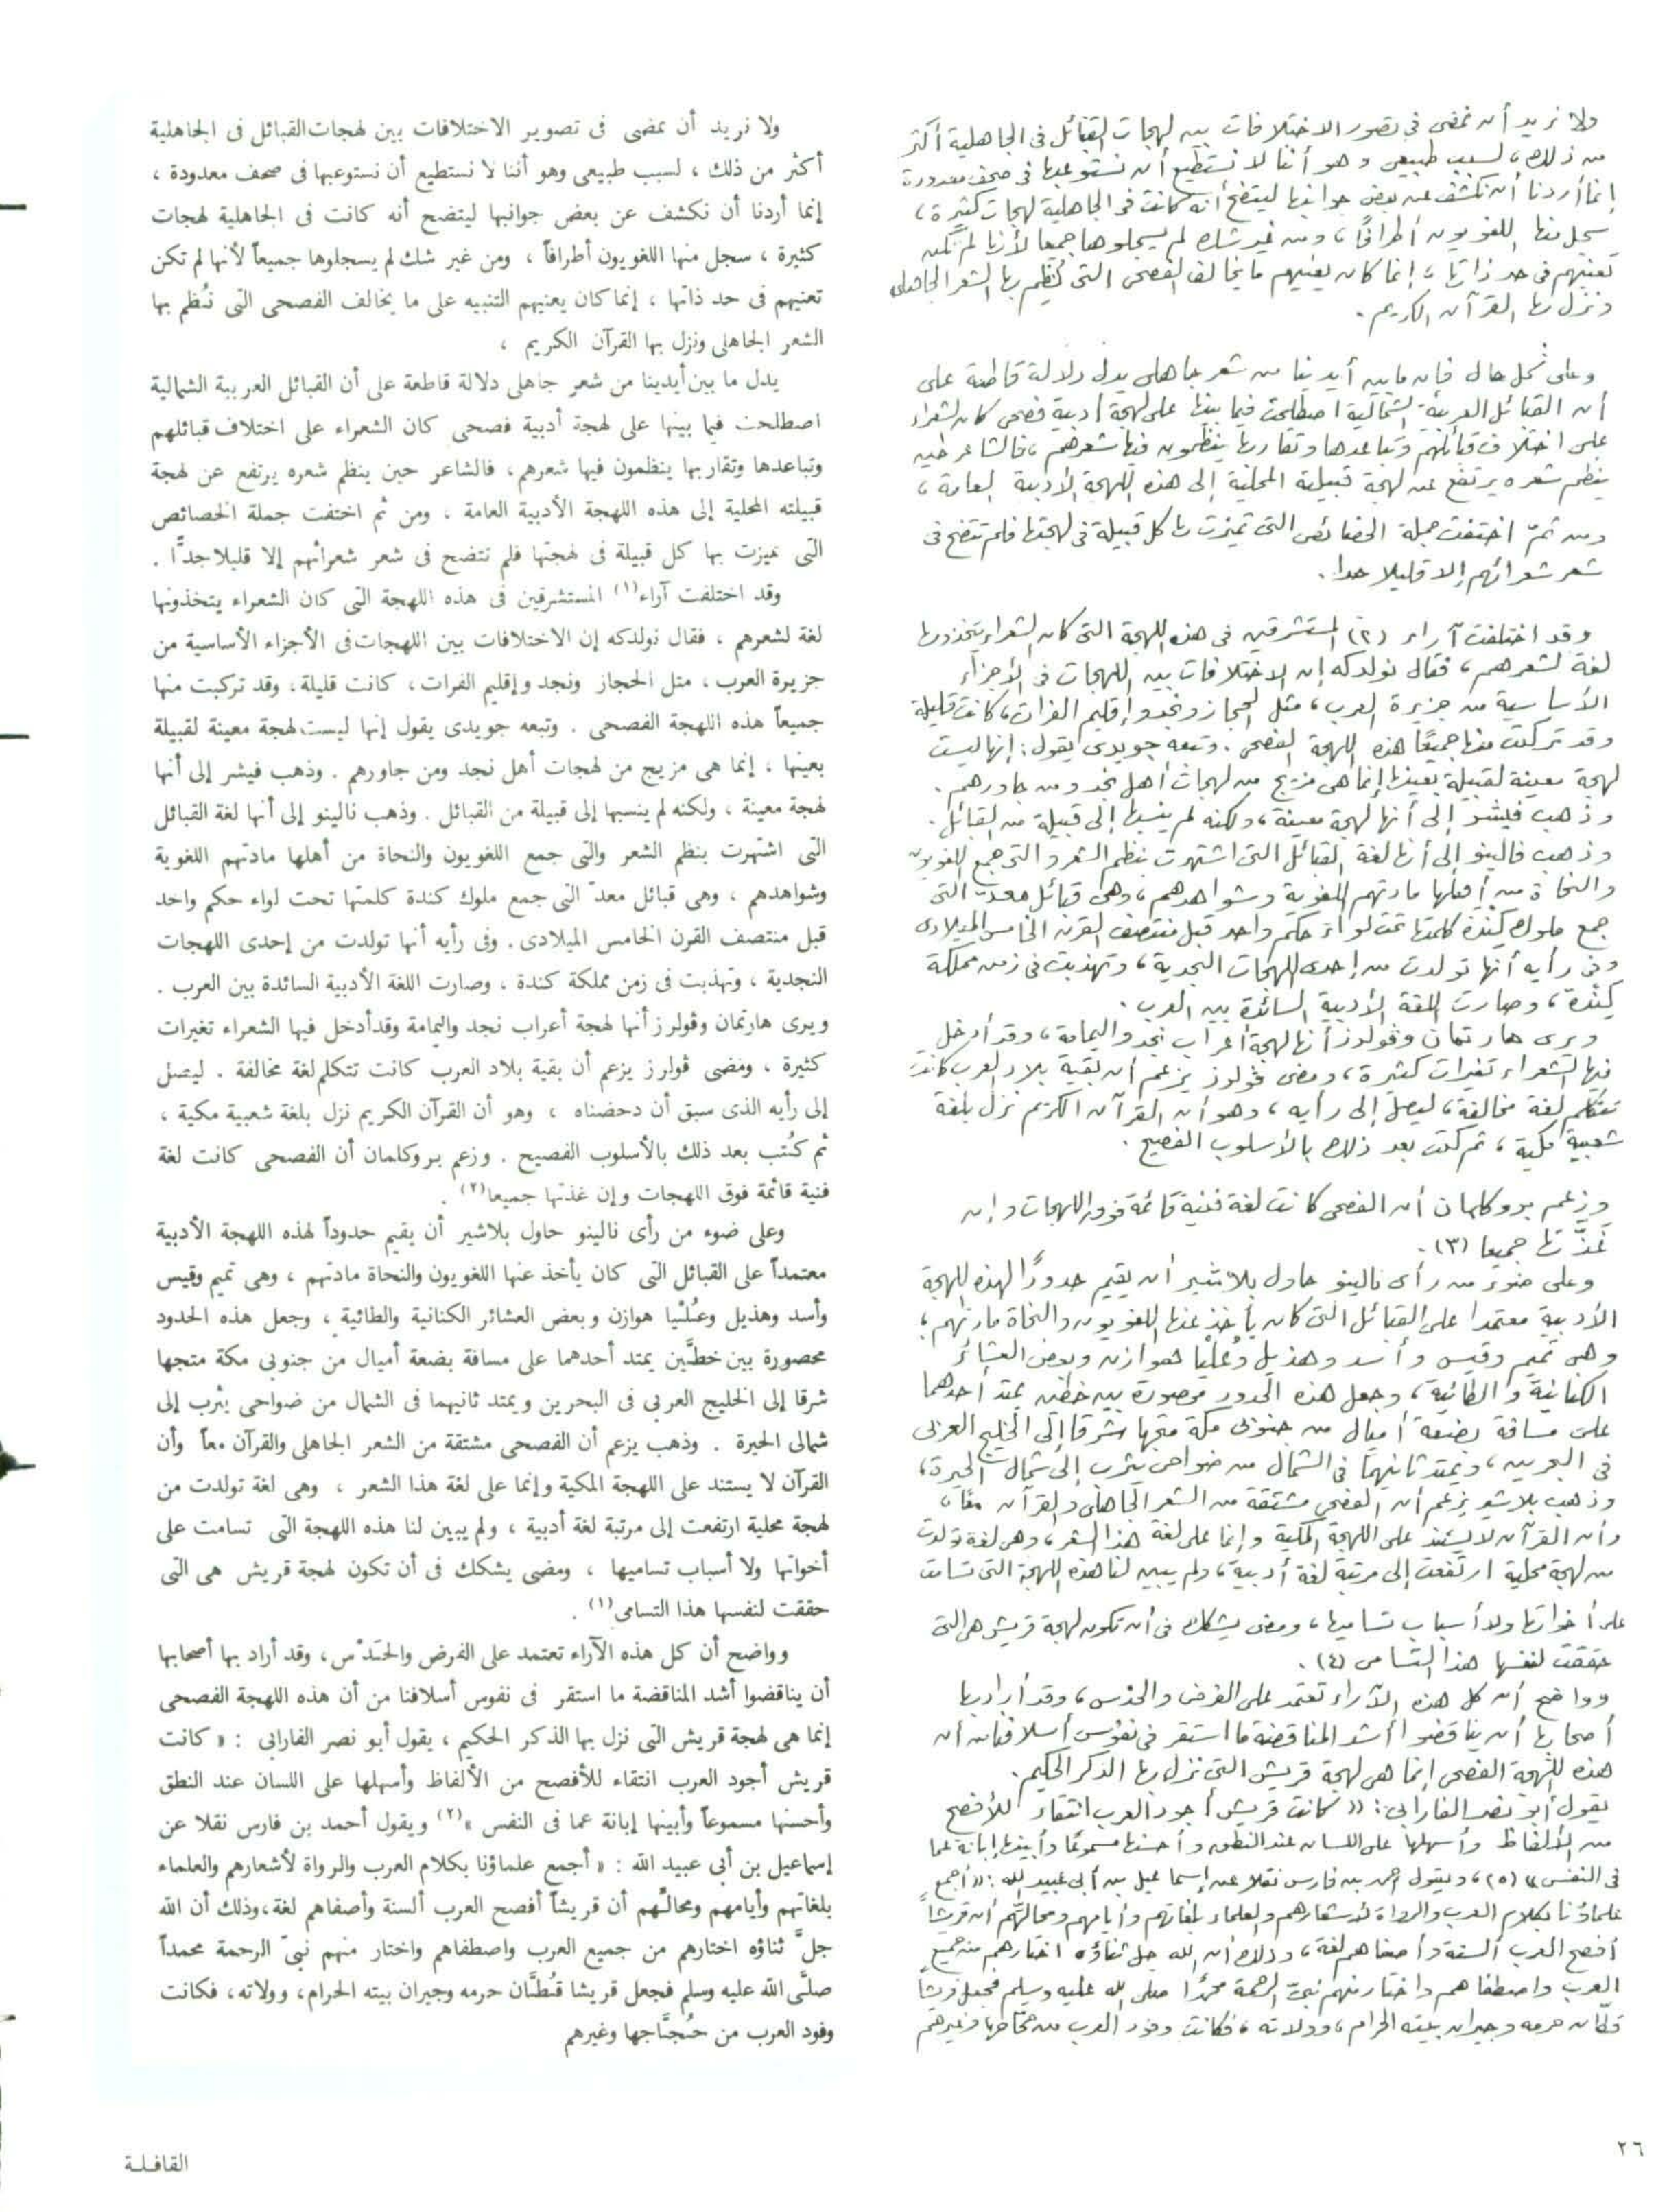 ولا نريد أن نمضى فى تصور الاختلافات بين لهجات القبائل فى الجاهلية أكثر
من ذلك، لسبب طبيعى وهو أننا لا نستطيع أن نستوعبها فى صحف معدودة
إنما أردنا أن نكشف عن بعض جوانبها ليتضح أنه كانت فى الجاهلية لهجات كثيرة،
سجل منها اللغويون أطرافًا، ومن غير شك لم يسجلوها جميعا لأنها لم تكن
تعنيهم فى حد ذاتها، إنما كان يعنيهم ما يخالف الفصحى التى نُظم بها الشعر الجاهلى
ونزل بها القرآن الكريم.
وعلى كل حال فإن ما بين أيدينا من شعر جاهلى يدل دلالة قاطعة على
أن القبائل العربية الشمالية اصطلحت فيما بينها على لهجة أدبية فصحى كان الشعراء
على اختلاف قبائلهم وتباعدها وتقاربها ينظمون فيها شعرهم، فالشاعر حين
ينظم شعره يرتفع عن لهجة قبيلته المحلية إلى هذه اللهجة الأدبية العامة،
ومن ثمّ اختفت جملة الخصائص التى تميزت بها كل قبيلة فى لهجتها فلم تتضح فى
شعر شعرائهم إلا قليلا جدا.
وقد اختلفت آراء (٢) المستشرقين فى هذه اللهجة التى كان الشعراء يتخذونها
لغة لشعرهم، فقال نولدكه إن الاختلافات بين اللهجات فى الأجزاء
الأساسية من جزيرة العرب، مثل الحجاز ونجد وإقليم الفرات، كانت قليلة
وقد تركبت منها جميعًا هذه اللهجة الفصحى. وتبعه جويدى يقول: إنها ليست
لهجة معينة لقبيلة بعينها إنما هى مزيج من لهجات أهل نجد ومن جاورهم.
وذهب فيشر إلى أنها لهجة معينة، ولكنه لم ينسبها إلى قبيلة من القبائل.
وذهب نالينو إلى أنها لغة القبائل التى اشتهرت بنظم الشعر والتى جمع اللغويون
والنحاة من أهلها مادتهم اللغوية وشواهدهم، وهى قبائل معدّ التى
جمع ملوك كِنْدَة كلمتها تحت لواء حكم واحد قبل منتصف القرن الخامس الميلادى
وفى رأيه أنها تولدت من إحدى اللهجات النجدية، وتهذبت فى زمن مملكة
كِنْدة، وصارت اللغة الأدبية السائدة بين العرب.
ويرى هارتمان وڤولرز أنها لهجة أعراب نجد واليمامة، وقد أدخل
فيها الشعراء تغيرات كثيرة، ومضى ڤولرز يزعم أن بقية بلاد العرب كانت
تتكلم لغة مخالفة، ليصل إلى رأيه، وهو أن القرآن الكريم نزل بلغة
شعبية مكية، ثم كتب بعد ذلك بالأسلوب الفصيح.
وزعم بروكلمان أن الفصحى كانت لغة فنية قائمة فوق اللهجات وإن
غَذَّتها جميعا (٣).
وعلى ضوء من رأى نالينو حاول بلاشير أن يقيم حدودًا لهذه اللهجة
الأدبية معتمدا على القبائل التى كان يأخذ عنها اللغويون والنحاة مادتهم؛
وهى تميم وقيس وأسد وهذيل وعُليا هوازن وبعض العشائر
الكنانية والطائية، وجعل هذه الحدود محصورة بين خطين يمتد أحدهما
على مسافة بضعة أميال من جنوبى مكة متجها شرقا إلى الخليج العربى
فى البحرين، ويمتد ثانيهما فى الشمال من ضواحى يثرب إلى شمال الحيرة،
وذهب بلاشير يزعم أن الفصحى مشتقة من الشعر الجاهلى والقرآن معًا،
وأن القرآن لا يستند على اللهجة المكية وإنما على لغة هذا الشعر، وهى لغة تولدت
من لهجة محلية ارتفعت إلى مرتبة لغة أدبية، ولم يبين لنا هذه اللهجة التى تسامت
على أخواتها ولا أسباب تساميها، ومضى يشكك فى أن تكون لهجة قريش هى التى
حققت لنفسها هذا التسامى (٤).
وواضح أن كل هذه الآراء تعتمد على الفرض والحدس، وقد أراد بها
أصحابها أن يناقضوا أشد المناقضة ما استقر فى نفوس أسلافنا من أن
هذه اللهجة الفصحى إنما هى لهجة قريش التى نزل بها الذكر الحكيم.
يقول أبو نصر الفارابى: «كانت قريش أجود العرب انتقاء للأفصح
من الألفاظ وأسهلها على اللسان عند النطق وأحسنها مسموعًا وأبينها إبانة عما
فى النفس» (٥)، ويقول أحمد بن فارس نقلا عن إسماعيل بن أبى عبيد الله: «أجمع
علماؤنا بكلام العرب والرواة لأشعارهم والعلماء بلغاتهم وأيامهم ومحالّهم أن قريشاً
أفصح العرب ألسنة وأصفاهم لغة، وذلك أن الله جل ثناؤه اختارهم من جميع
العرب واصطفاهم واختار منهم نبىّ الرحمة محمدًا صلى الله عليه وسلم فجعل قريشاً
قطّان حرمه وجيران بيته الحرام، وولاته، فكانت وفود العرب من حجّاجها وغيرهم
ولا نريد أن نمضى فى تصوير الاختلافات بين لهجات القبائل فى الجاهلية
أكثر من ذلك ، لسبب طبيعى وهو أننا لا نستطيع أن نستوعبها فى صحف معدودة ،
إنما أردنا أن نكشف عن بعض جوانبها ليتضح أنه كانت فى الجاهلية لهجات
كثيرة ، سجل منها اللغويون أطرافاً ، ومن غير شك لم يسجلوها جميعاً لأنها لم تكن
تعنيهم فى حد ذاتها ، إنما كان يعنيهم التنبيه على ما يخالف الفصحى التى نُظم بها
الشعر الجاهلى ونزل بها القرآن الكريم ،
يدل ما بين أيدينا من شعرٍ جاهلى دلالة قاطعة على أن القبائل العربية الشمالية
اصطلحت فيما بينها على لهجة أدبية فصحى كان الشعراء على اختلاف قبائلهم
وتباعدها وتقاربها ينظمون فيها شعرهم، فالشاعر حين ينظم شعره يرتفع عن لهجة
قبيلته المحلية إلى هذه اللهجة الأدبية العامة ، ومن ثم اختفت جملة الخصائص
التى تميزت بها كل قبيلة فى لهجتها فلم تتضح فى شعر شعرائهم إلا قليلا جدًّا .
وقد اختلفت آراء(١) المستشرقين فى هذه اللهجة التى كان الشعراء يتخذونها
لغة لشعرهم ، فقال نولدكه إن الاختلافات بين اللهجات فى الأجزاء الأساسية من
جزيرة العرب ، مثل الحجاز ونجد وإقليم الفرات ، كانت قليلة ، وقد تركبت منها
جميعاً هذه اللهجة الفصحى . وتبعه جويدى يقول إنها ليست لهجة معينة لقبيلة
بعينها ، إنما هى مزيج من لهجات أهل نجد ومن جاورهم . وذهب فيشر إلى أنها
لهجة معينة ، ولكنه لم ينسبها إلى قبيلة من القبائل . وذهب نالينو إلى أنها لغة القبائل
التى اشتهرت بنظم الشعر والتى جمع اللغويون والنحاة من أهلها مادتهم اللغوية
وشواهدهم ، وهى قبائل معدّ التى جمع ملوك كندة كلمتها تحت لواء حكم واحد
قبل منتصف القرن الخامس الميلادى . وفى رأيه أنها تولدت من إحدى اللهجات
النجدية ، وتهذبت فى زمن مملكة كندة ، وصارت اللغة الأدبية السائدة بين العرب .
ويرى هارتمان وڤولرز أنها لهجة أعراب نجد واليمامة وقد أدخل فيها الشعراء تغيرات
كثيرة ، ومضى ڤولرز يزعم أن بقية بلاد العرب كانت تتكلم لغة مخالفة . ليصل
إلى رأيه الذى سبق أن دحضناه ، وهو أن القرآن الكريم نزل بلغة شعبية مكية ،
ثم كُتب بعد ذلك بالأسلوب الفصيح . وزعم بروكلمان أن الفصحى كانت لغة
فنية قائمة فوق اللهجات وإن غذتها جميعا(٢) .
وعلى ضوء من رأى نالينو حاول بلاشير أن يقيم حدوداً لهذه اللهجة الأدبية
معتمداً على القبائل التى كان يأخذ عنها اللغويون والنحاة مادتهم ، وهى تميم وقيس
وأسد وهذيل وعُلْيا هوازن وبعض العشائر الكنانية والطائية ، وجعل هذه الحدود
محصورة بين خطَّين يمتد أحدهما على مسافة بضعة أميال من جنوبى مكة متجها
شرقا إلى الخليج العربى فى البحرين ويمتد ثانيهما فى الشمال من ضواحى يثرب إلى
شمالى الحيرة . وذهب يزعم أن الفصحى مشتقة من الشعر الجاهلى والقرآن معاً وأن
القرآن لا يستند على اللهجة المكية وإنما على لغة هذا الشعر ، وهى لغة تولدت من
لهجة محلية ارتفعت إلى مرتبة لغة أدبية ، ولم يبين لنا هذه اللهجة التى تسامت على
أخواتها ولا أسباب تساميها ، ومضى يشكك فى أن تكون لهجة قريش هى التى
حققت لنفسها هذا التسامى(١) .
وواضح أن كل هذه الآراء تعتمد على الفرض والحَدْس، وقد أراد بها أصحابها
أن يناقضوا أشد المناقضة ما استقر فى نفوس أسلافنا من أن هذه اللهجة الفصحى
إنما هى لهجة قريش التى نزل بها الذكر الحكيم ، يقول أبو نصر الفارابى : « كانت
قريش أجود العرب انتقاء للأفصح من الألفاظ وأسهلها على اللسان عند النطق
وأحسنها مسموعاً وأبينها إبانة عما فى النفس »(٢) ويقول أحمد بن فارس نقلا عن
إسماعيل بن أبى عبيد الله : « أجمع علماؤنا بكلام العرب والرواة لأشعارهم والعلماء
بلغاتهم وأيامهم ومحالِّهم أن قريشاً أفصح العرب ألسنة وأصفاهم لغة، وذلك أن الله
جلَّ ثناؤه اختارهم من جميع العرب واصطفاهم واختار منهم نبىّ الرحمة محمداً
صلَّى الله عليه وسلم فجعل قريشا قُطَّان حرمه وجيران بيته الحرام، وولاته، فكانت
وفود العرب من حُجَّاجها وغيرهم
٢٦
القافلة